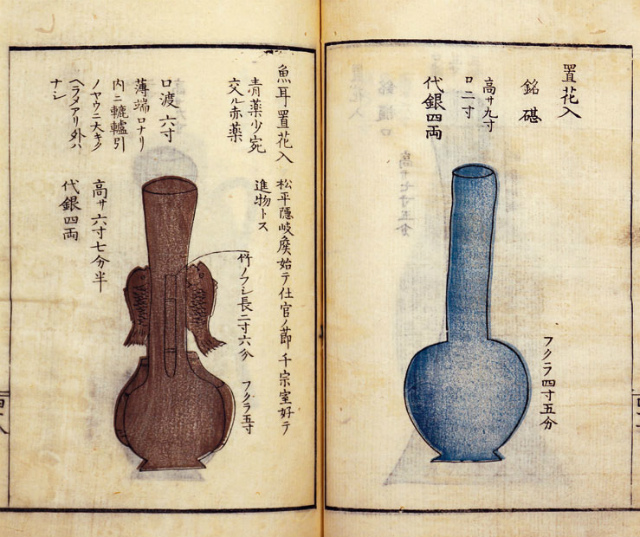 置花入
銘 碪
高サ九寸
口二寸
代銀四両
フクラ四寸五分
魚耳置花入
青薬少宛
交ル赤薬
口渡 六寸
薄端口ナリ
内ニ轆轤引
ノヤウニ大キク
ヘラタアリ外ハ
ナシ
松平隠岐侯始テ仕官ノ節千宗室好テ
進物トス
竹ノフシ長二寸六分
フクラ五寸
高サ六寸七分半
代銀四両